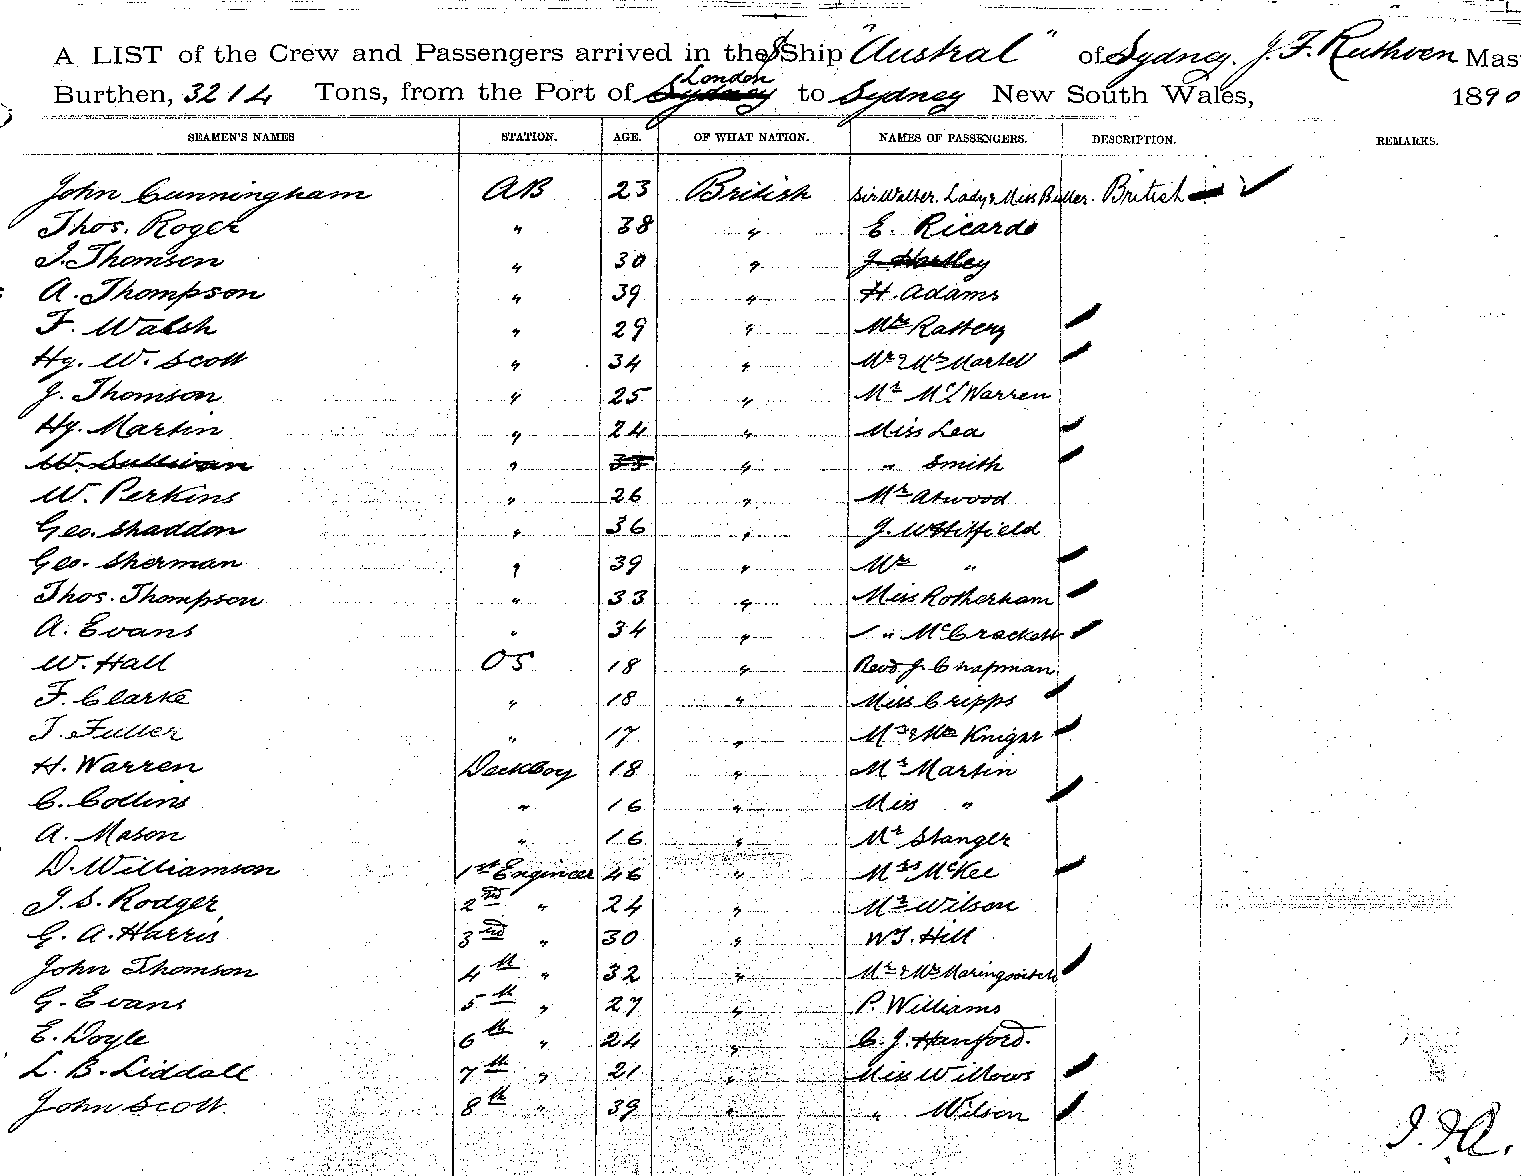 A LIST of the Crew and Passengers arrived in the S Ship "Austral" of Sydney. J. F. Ruthven Mas
Burthen, 3214 Tons, from the Port of Sydney London to Sydney New South Wales, 1890
SEAMEN'S NAMES STATION. AGE. OF WHAT NATION. NAMES OF PASSENGERS. DESCRIPTION. REMARKS.
John Cunningham AB 23 British Sir Walter, Lady & Miss Buller. British
Thos. Roger " 38 " E. Ricardo
J. Thomson " 30 " J. Hartley
A. Thompson " 39 " H. Adams
F. Walsh " 29 " Mrs Rattery
Hy. W. Scott " 34 " Mr & Mrs Martell
J. Thomson " 25 " Mr Warren
Hy. Martin " 24 " Miss Lea
W. Sullivan " 35 " " Smith
W. Perkins " 26 " Mr Atwood
Geo. Shaddon " 36 " J. Whitfield
Geo. Sherman " 39 " Mrs "
Thos. Thompson " 33 " Miss Rotherham
A. Evans " 34 " " McCrackett
W. Hall OS 18 " Revd. J. Chapman
F. Clarke " 18 " Miss Cripps
T. Fuller " 17 " Mr & Mrs Knight
H. Warren Deckboy 18 " Mr Martin
C. Collins " 16 " Miss "
A. Mason " 16 " Mr Stanger
D. Williamson 1st Engineer 46 " Mrs McKee
J. S. Rodger 2nd " 24 " Mr Wilson
G. A. Harris 3rd " 30 " W. J. Hill
John Thomson 4th " 32 " Mr & Mrs
G. Evans 5th " 27 " P. Williams
E. Doyle 6th " 24 " C. J. Hanford.
L. B. Liddall 7th " 21 " Miss Willows
John Scott 8th " 39 " " Wilson